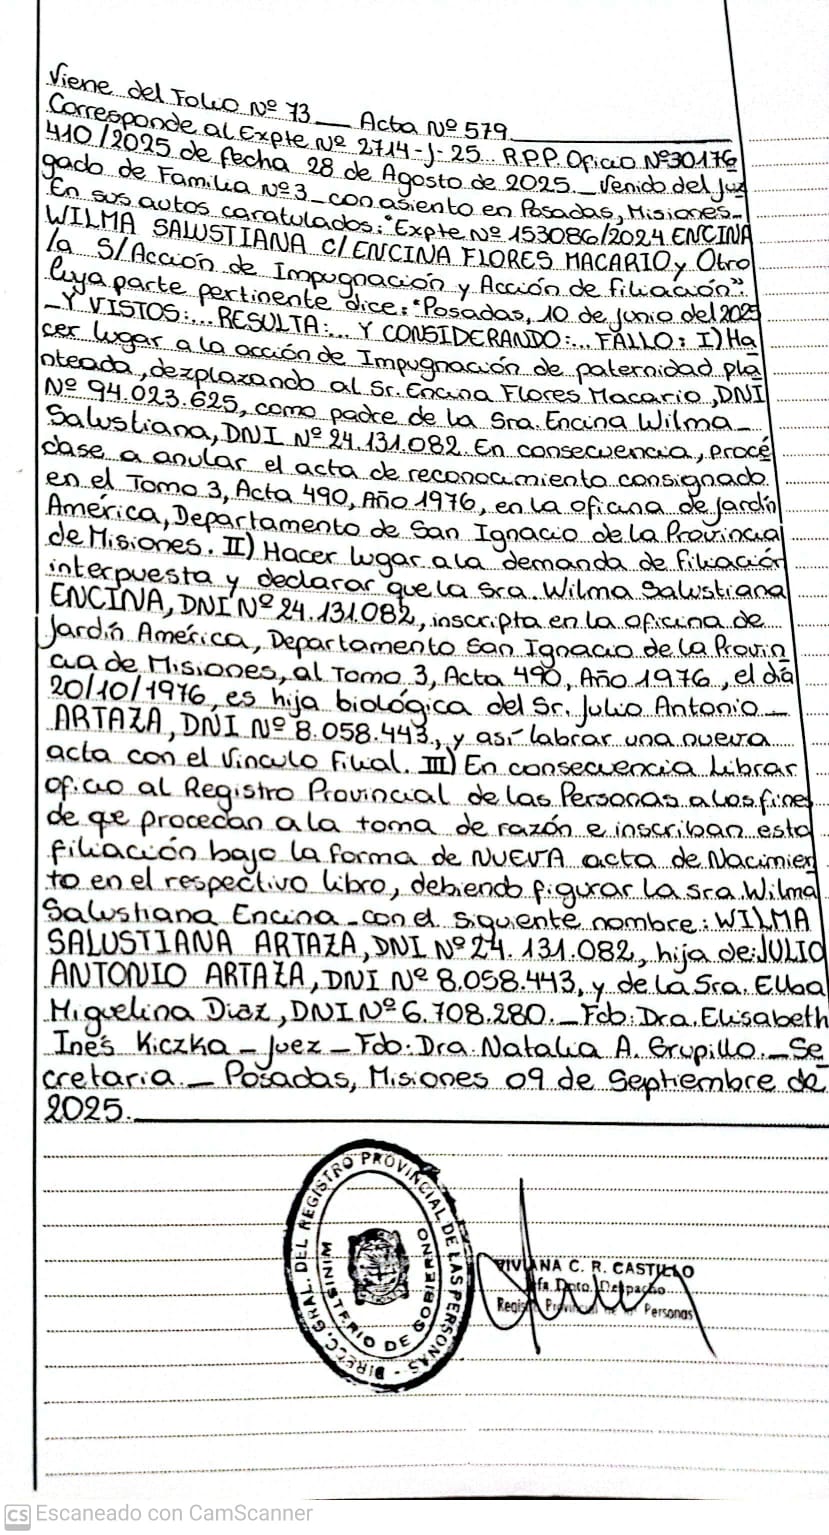 Viene del Folio Nº 73 __ Acta Nº 579
Corresponde al Expte Nº 2714-J-25.. R.P.P. Oficio Nº30176
410/2025 de fecha 28 de Agosto de 2025._ Venido del Juz
gado de Familia Nº3_ con asiento en Posadas, Misiones_
En sus autos caratulados: "Expte Nº 153086/2024 ENCINA
WILMA SALUSTIANA C/ ENCINA FLORES MACARIO y Otro
/a S/Acción de Impugnación y Acción de filiación".
Cuya parte pertinente dice: "Posadas, 10 de junio del 2025
_Y VISTOS:... RESULTA:... Y CONSIDERANDO:... FALLO: I) Ha
cer lugar a la acción de Impugnación de paternidad pla
nteada, dezplazando al Sr. Encina Flores Macario, DNI
Nº 94.023.625, como padre de la Sra. Encina Wilma_
Salustiana, DNI Nº 24.131.082. En consecuencia, procé
dase a anular el acta de reconocimiento consignado
en el Tomo 3, Acta 490, Año 1976, en la oficina de Jardín
América, Departamento de San Ignacio de la Provincia
de Misiones. II) Hacer lugar a la demanda de filiación
interpuesta y declarar que la Sra. Wilma Salustiana
ENCINA, DNI Nº 24.131.082, inscripta en la oficina de
Jardín América, Departamento San Ignacio de la Provin
cia de Misiones, al Tomo 3, Acta 490, Año 1976, el día
20/10/1976, es hija biológica del Sr. Julio Antonio_
ARTAZA, DNI Nº 8.058.443., y así labrar una nueva
acta con el Vinculo Filial. III) En consecuencia Librar
oficio al Registro Provincial de las Personas a los fines
de que procedan a la toma de razón e inscriban esta
filiación bajo la forma de NUEVA acta de Nacimien
to en el respectivo libro, debiendo figurar La sra Wilma
Salustiana Encina_con el siguiente nombre: WILMA
SALUSTIANA ARTAZA, DNI Nº 24.131.082, hija de: JULIO
ANTONIO ARTAZA, DNI Nº 8.058.443, y de la Sra. Elba
Miguelina Diaz, DNI Nº 6.708.280._ Fdo. Dra. Elisabeth
Inés Kiczka _ Juez _ Fdo: Dra. Natalia A. Grupillo._ Se
cretaria._ Posadas, Misiones 09 de Septiembre de
2025.
DIRECC. GRAL. DEL REGISTRO PROVINCIAL DE LAS PERSONAS -
MINISTERIO DE GOBIERNO
VIVIANA C. R. CASTILLO
Jfa. Dpto. Despacho
Registro Provincial de las Personas
CS Escaneado con CamScanner